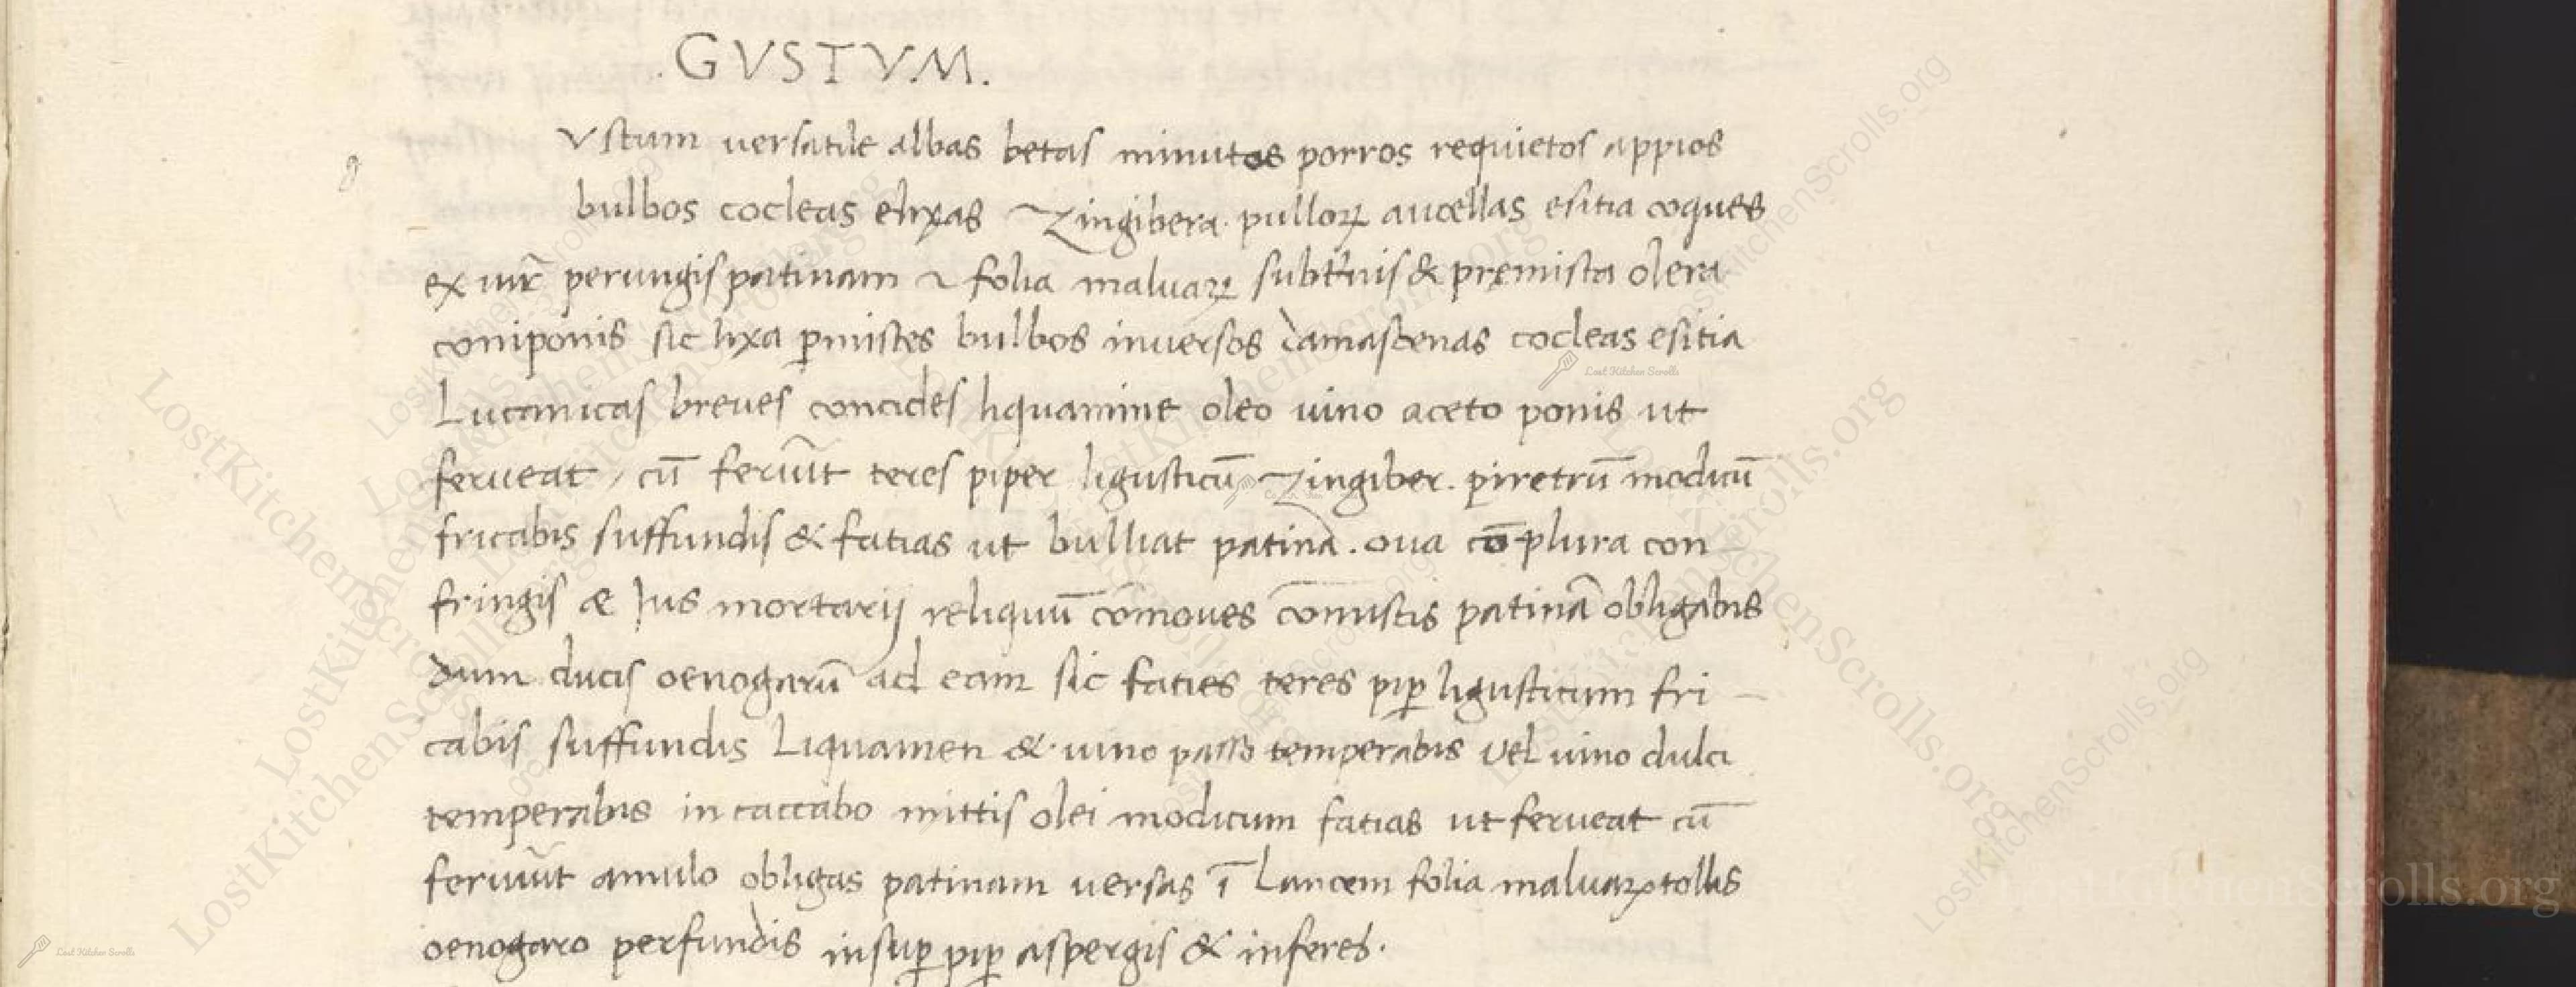 .GVSTVM.
Vstum uersatile albas betas minutas porros requietos appios
g
bulbos cocleas elixas Zingibera. pulloꝝ aucellas esitia coques
ex iur̄ perungis patinam ⁊ folia maluaꝝ subt̄nis & pręmista olera
componis sic lixa ꝑmistes bulbos inuersos damascenas cocleas esitia
Lucanicas breues concides liquamine oleo uino aceto ponis ut
ferueat / cū feruūt teres piper ligusticū Zingiber. piretrū modicū
fricabis suffundis & facias ut bulliat patinā. oua cōplura con
fringis æ Ius mortarij reliquū cōmoues comistis patinā obligabis
dum ducis oenogarū ad eam sic facies teres piꝑ ligusticum fri -
cabis suffundis Liquamen & uino passo temperabis vel uino dulci
temperabis in caccabo mittis olei modicum facias ut ferueat cū
feruūt amulo obligas patinam uersas ī Lancem folia maluaꝝ tollis
oenogaro perfundis insuꝑ piꝑ aspergis & inferes.
LostKitchenScrolls.org
Lost Kitchen Scrolls